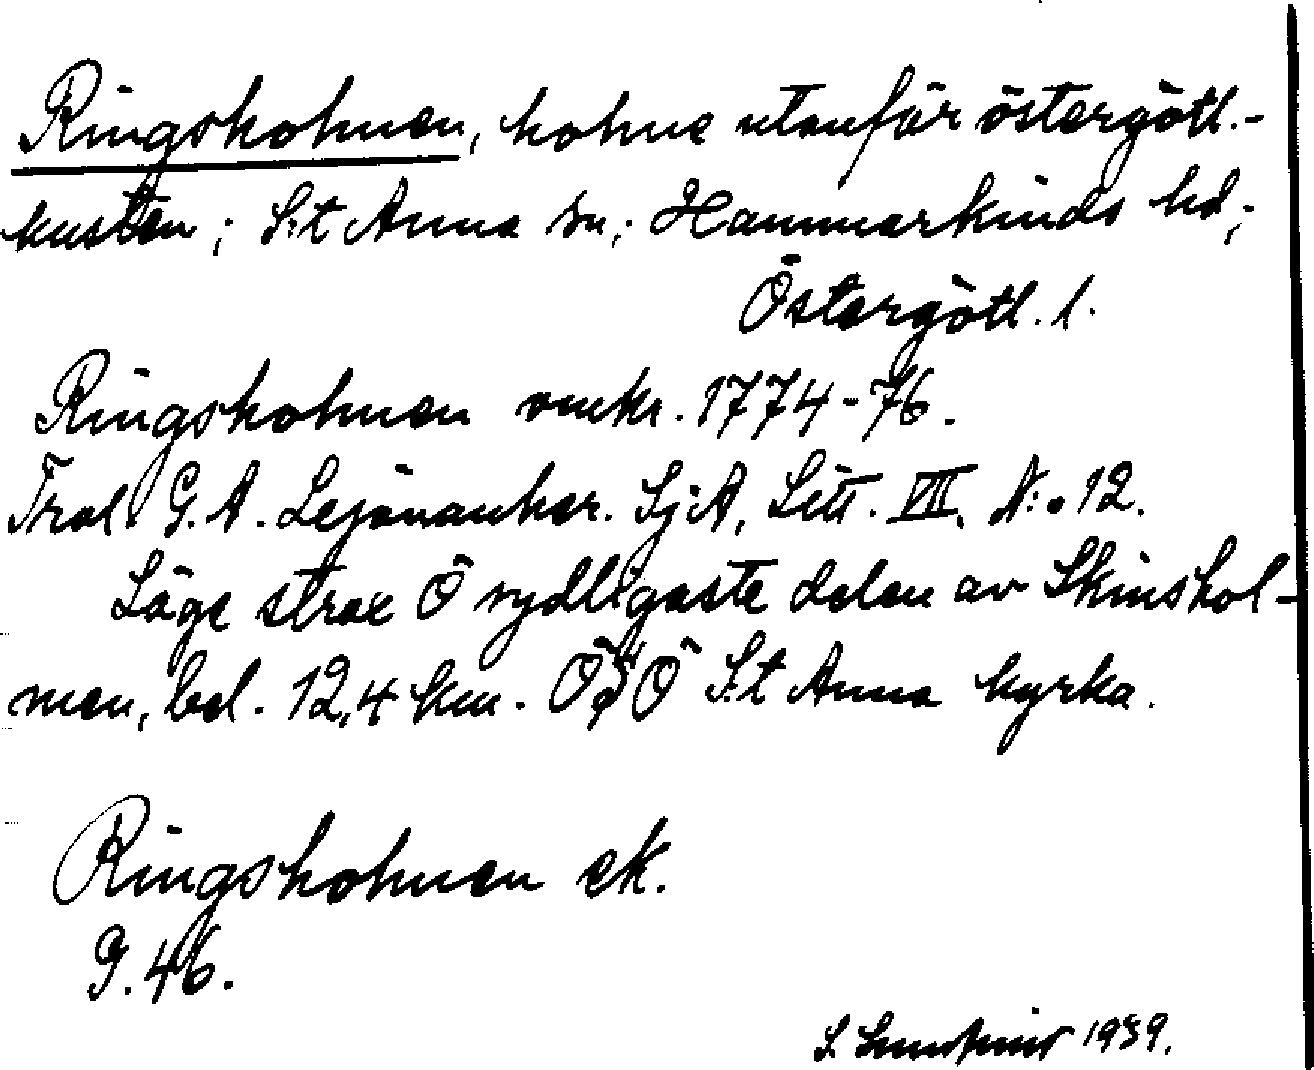 Ringsholmen, holme utanför östergötl.-
kusten; S:t Anna sn; Hammarkinds hd;
Östergötl. l.
Ringsholmen omkr. 1774-76.
Trol. G. A. Lejonanker. SjA, Litt. VIII, N:o 12.
Läge strax Ö sydligaste delen av Skinshol-
men, bel. 12,4 km. ÖSÖ S:t Anna kyrka.
Ringsholmen ek.
G. 46.
S. 1939.